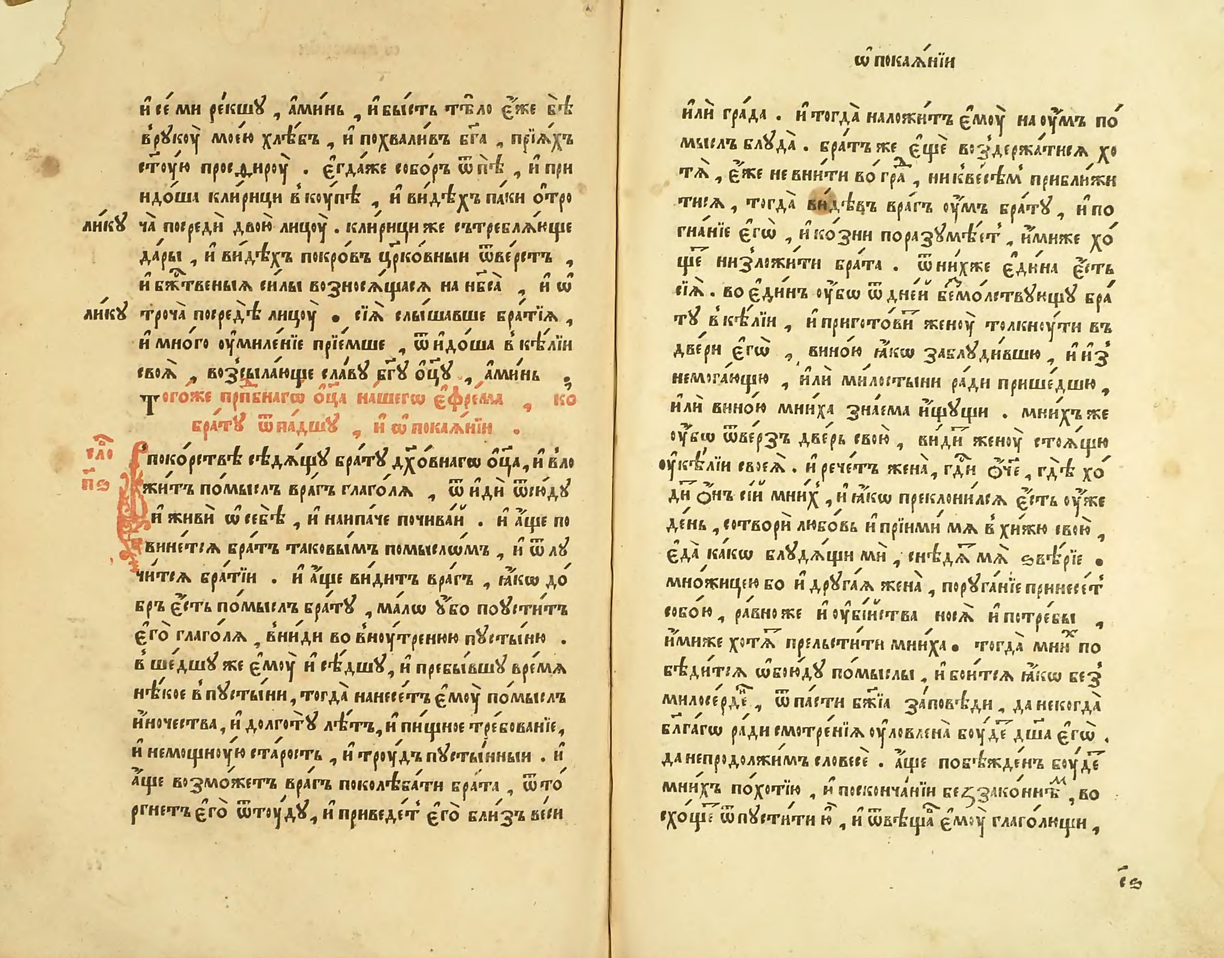 и҆ се́ ми ре́кшꙋ , а҆ми́нь , и҆ бы́сть тѣ́ло е҆́же бѣ̀
в̾рꙋкоу̀ мое́ю хлѣ́бъ , и҆ похвали́въ бг҃а , прїѧ́хъ
ст҃оую просдироу̀ . е҆гда́же собо́ръ ѿпѣ̀ , и҆ при
идо́ша кли́рици в̾коу́пѣ , и҆ ви́дѣхъ па́ки о҆тро
лику̀
ча̀ посредѝ двою̀ лицоу̀ . кли́рици же сътреблѧ́юще
да́ры , и҆ ви́дѣхъ покро́въ цр҃ко́вныи ѿве́рстъ ,
и҆ бж҃твеныѧ си́лы возносѧ́щаѧсѧ на нб҃са̀ , и҆ ѡ
лику̀
троча̀ посредѣ̀ лицоу̀ . сїѧ̀ слы́шавше бра́тїѧ ,
и҆ мно́го оу҆миле́нїе прїе́мше , ѿидо́ша в̾ кѣ́лїи
своѧ̀ , возсыла́юще сла́вꙋ бг҃ꙋ ѻ҆ц҃ꙋ , а҆ми́нь .
Того́же прпⷣбнагѡ ѻ҆ц҃а̀ на́шегѡ е҆фре́ма , ко
бра́тꙋ ѿпа́дшꙋ , и҆ ѡ покаѧ́нїи .
сло
п҃ѕ
в̾покорствѣ̀ сѣдѧ́щꙋ бра́тꙋ дх҃о́внагѡ ѻ҆ц҃а̀, и҆ вло
жи́тъ по́мыслъ вра́гъ глаго́лѧ , ѿидѝ ѿсю́дꙋ
и҆ живѝ ѡ себѣ̀ , и҆ наипа́че почива́й . и҆ а҆́ще по
вине́тсѧ бра́тъ таковы́мъ по́мыслѡмъ , и҆ ѿлꙋ
чи́тсѧ бра́тїи . и҆ а҆́ще ви́дитъ вра́гъ , ꙗ҆́кѡ до́
бръ е҆́сть по́мыслъ бра́тꙋ , ма́лѡ ꙋ҆́бо поꙋсти́тъ
е҆го̀ глаго́лѧ , вни́ди во вноу́треннюю пꙋсты́ню .
в̾ше́дшꙋ же е҆моу̀ и҆ сѣ́дшꙋ, и҆ пребы́вшꙋ вре́мѧ
нѣ́кое в̾пꙋсты́ни, тогда̀ нанесе́тъ е҆моу̀ по́мыслъ
и҆́ночества, и҆ долготꙋ̀ лѣ́тъ, и҆ пи́щное тре́бованїе,
и҆ немощноую ста́рость , и҆ троу́дъ пꙋсты́нныи . и҆
а҆́ще возмо́жетъ вра́гъ поколѣба́ти бра́та , ѿто́
ргнетъ е҆го̀ ѿтоу́дꙋ, и҆ приведе́т̾ е҆го̀ бли́зъ ве́си
ѡ покаѧ́нїи
и҆лѝ гра́да . и҆ тогда̀ наложи́тъ е҆моу̀ на оу҆́мъ по́
мыслъ блꙋ́да . бра́тъ же е҆щѐ воздержа́тисѧ хо
тѧ̀ , е҆́же не вни́ти во граⷣ , ни к̾ве́семⸯ прибли́жи
тисѧ , тогда̀ ви́дѣвъ вра́гъ оу҆́мъ бра́тꙋ , и҆ по
гна́нїе е҆гѡ̀ , и҆ ко́зни поразꙋмѣ́ет̾ , и҆́миже хо́
щеⷮ низложи́ти бра́та . ѿ ни́хже е҆ди́на е҆́сть
сїѧ̀ . во е҆ди́нъ оу҆́бѡ ѿ дне́й беⷥмо́лствꙋющꙋ бра́
тꙋ в̾ кѣ́лїи , и҆ пригото́виⷮ женоу̀ толкноу́ти въ
две́ри е҆гѡ̀ , вино́ю ꙗ҆́кѡ заблꙋди́вшю , и҆ и҆з̾
немога́ющю , и҆лѝ ми́лостыни ра́ди прише́дшю ,
и҆лѝ вино́ю мни́ха зна́ема и҆́щꙋщи . мни́хъ же
оу҆́бѡ ѿве́рзъ две́рь свою̀ , ви́диⷮ женоу̀ стоѧ́щю
оу҆ кѣ́лїи своеѧ̀ . и҆ рече́тъ жена̀ , гдⷭ҇и ѻ҆́ч҃е , гдѣ̀ хо́
диⷮ ѻ҆́нъ сі́й мни́х̾ , и҆ ꙗ҆́кѡ преклони́лсѧ е҆́сть оу҆́же
де́нь , сотворѝ любо́вь и҆ прїимѝ мѧ̀ в̾ хи́жю свою̀ ,
е҆да̀ ка́кѡ блꙋдѧ́щи мѝ , снѣдѧⷮ мѧ̀ ѕвѣ́рїе .
мно́жицею бо и҆ дрꙋга́ѧ жена̀ , порꙋга́нїе принесе́т̾
собо́ю , ра́вно же и҆ оу҆бі́йства носѧ̀ и҆ потре́бы ,
и҆́миже хотѧⷮ прельсти́ти мни́ха . тогда̀ мниⷯ по
бѣ́дитсѧ ѡ҆бою́дꙋ по́мыслы , и҆ бои́тсѧ ꙗ҆́кѡ без̾
милосе́рдеⷩ , ѿпа́сти бж҃їа за́повѣди , да некогда̀
бл҃га́гѡ ра́ди смотре́нїѧ оу҆ловлена̀ боу́деⷮ дш҃а̀ е҆гѡ̀ .
да не продолжи́мъ словесѐ . а҆́ще побѣжде́нъ боу́деⷮ
мни́хъ по́хотїю , и҆ по сконча́нїи беззако́ниѣⷨ , во
схо́щеⷮ ѿпꙋсти́ти ю҆̀ , и҆ ѿвѣща́еⷮ е҆моу̀ глаго́лющи ,
с҃ѕ